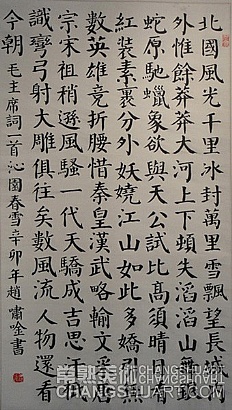 北國風光千里冰封萬里雪飄望長城內
外惟餘莽莽大河上下頓失滔滔山舞
蛇原馳蠟象欲與天公試比高須晴日
紅裝素裹分外妖嬈江山如此多嬌引無
數英雄競折腰惜秦皇漢武略輸文采
宗宋祖稍遜風騷一代天驕成吉思汗
識彎弓射大雕俱往矣數風流人物還看
今朝 毛主席詞一首沁園春雪辛卯年趙嘯唫書
常熟